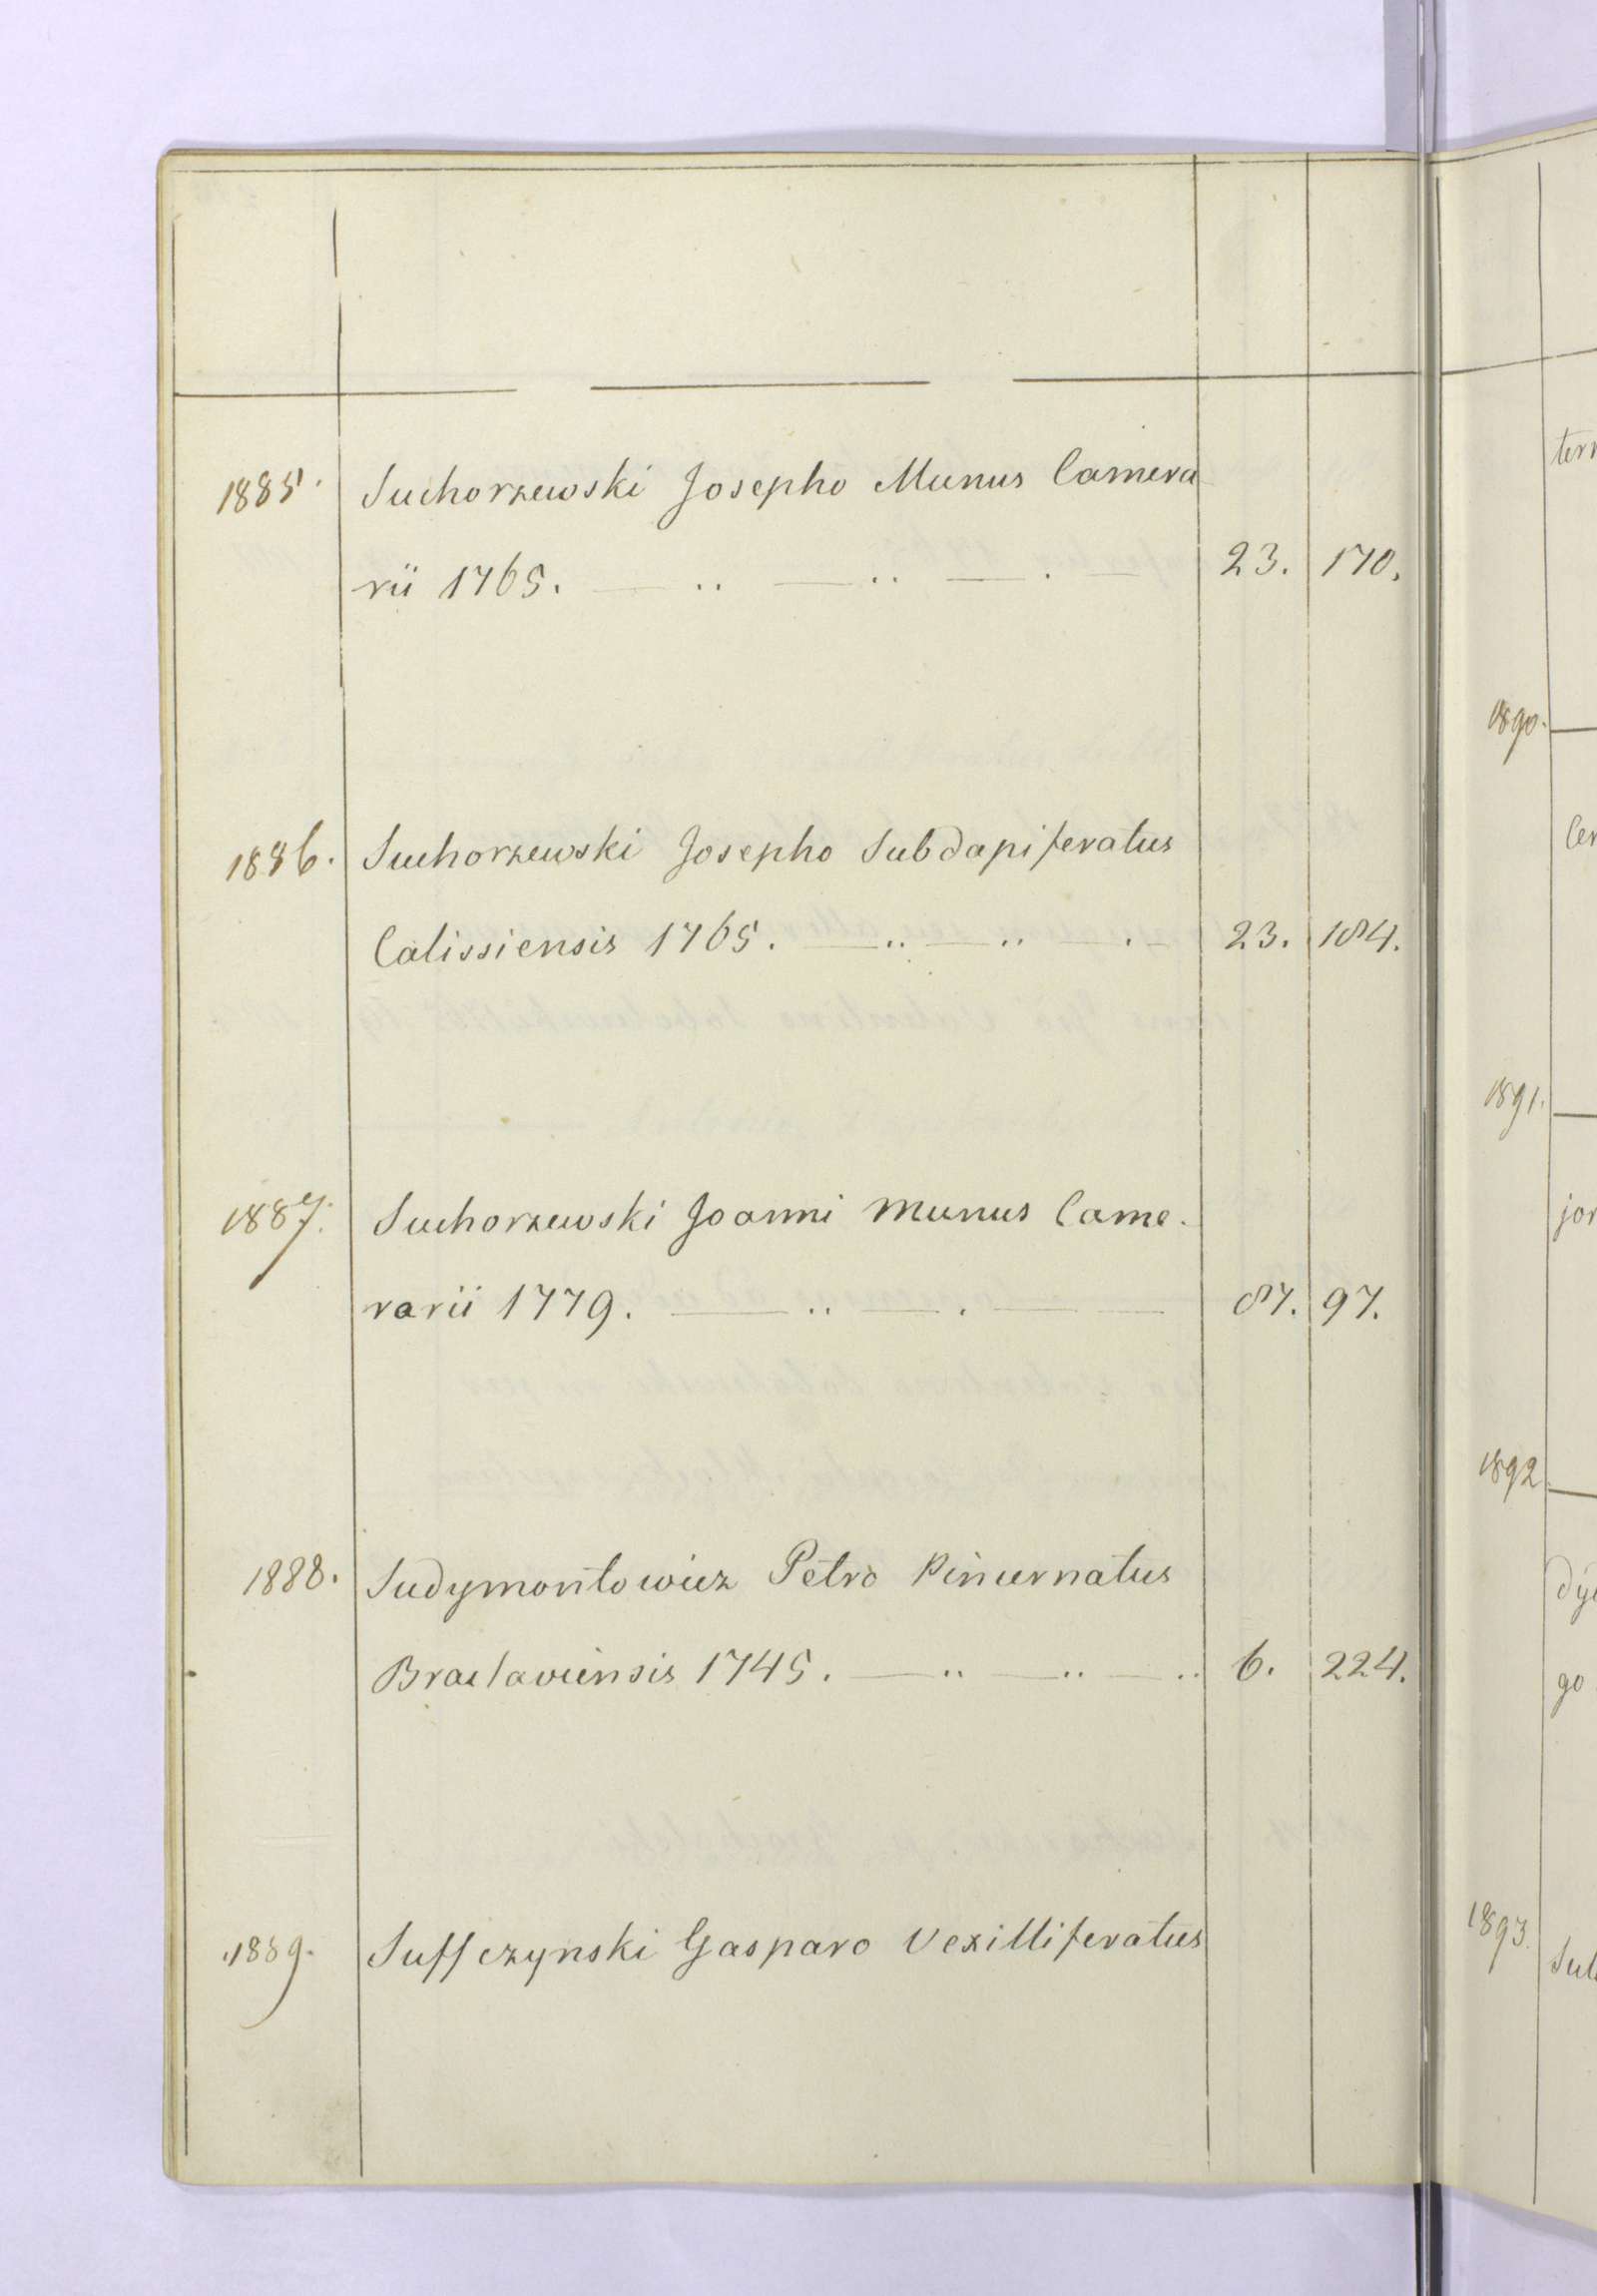 1885. Suchorzewski Josepho Munus Camera
rii 1765. — .. — .. — . — 23. 170.
1886. Suchorzewski Josepho Subdapiferatus
Calissiensis 1765. — .. — .. — . — 23. 184.
1887. Suchorzewski Joanni Munus Came.
rarii 1779. — .. — . — — 87. 97.
1888. Sudymontowicz Petro Pincernatus
Braclaviensis 1745. — .. — .. — .. 6. 224.
1889. Suffczynski Gasparo Vexilliferatus
1890.
1891.
1892
go
1893.